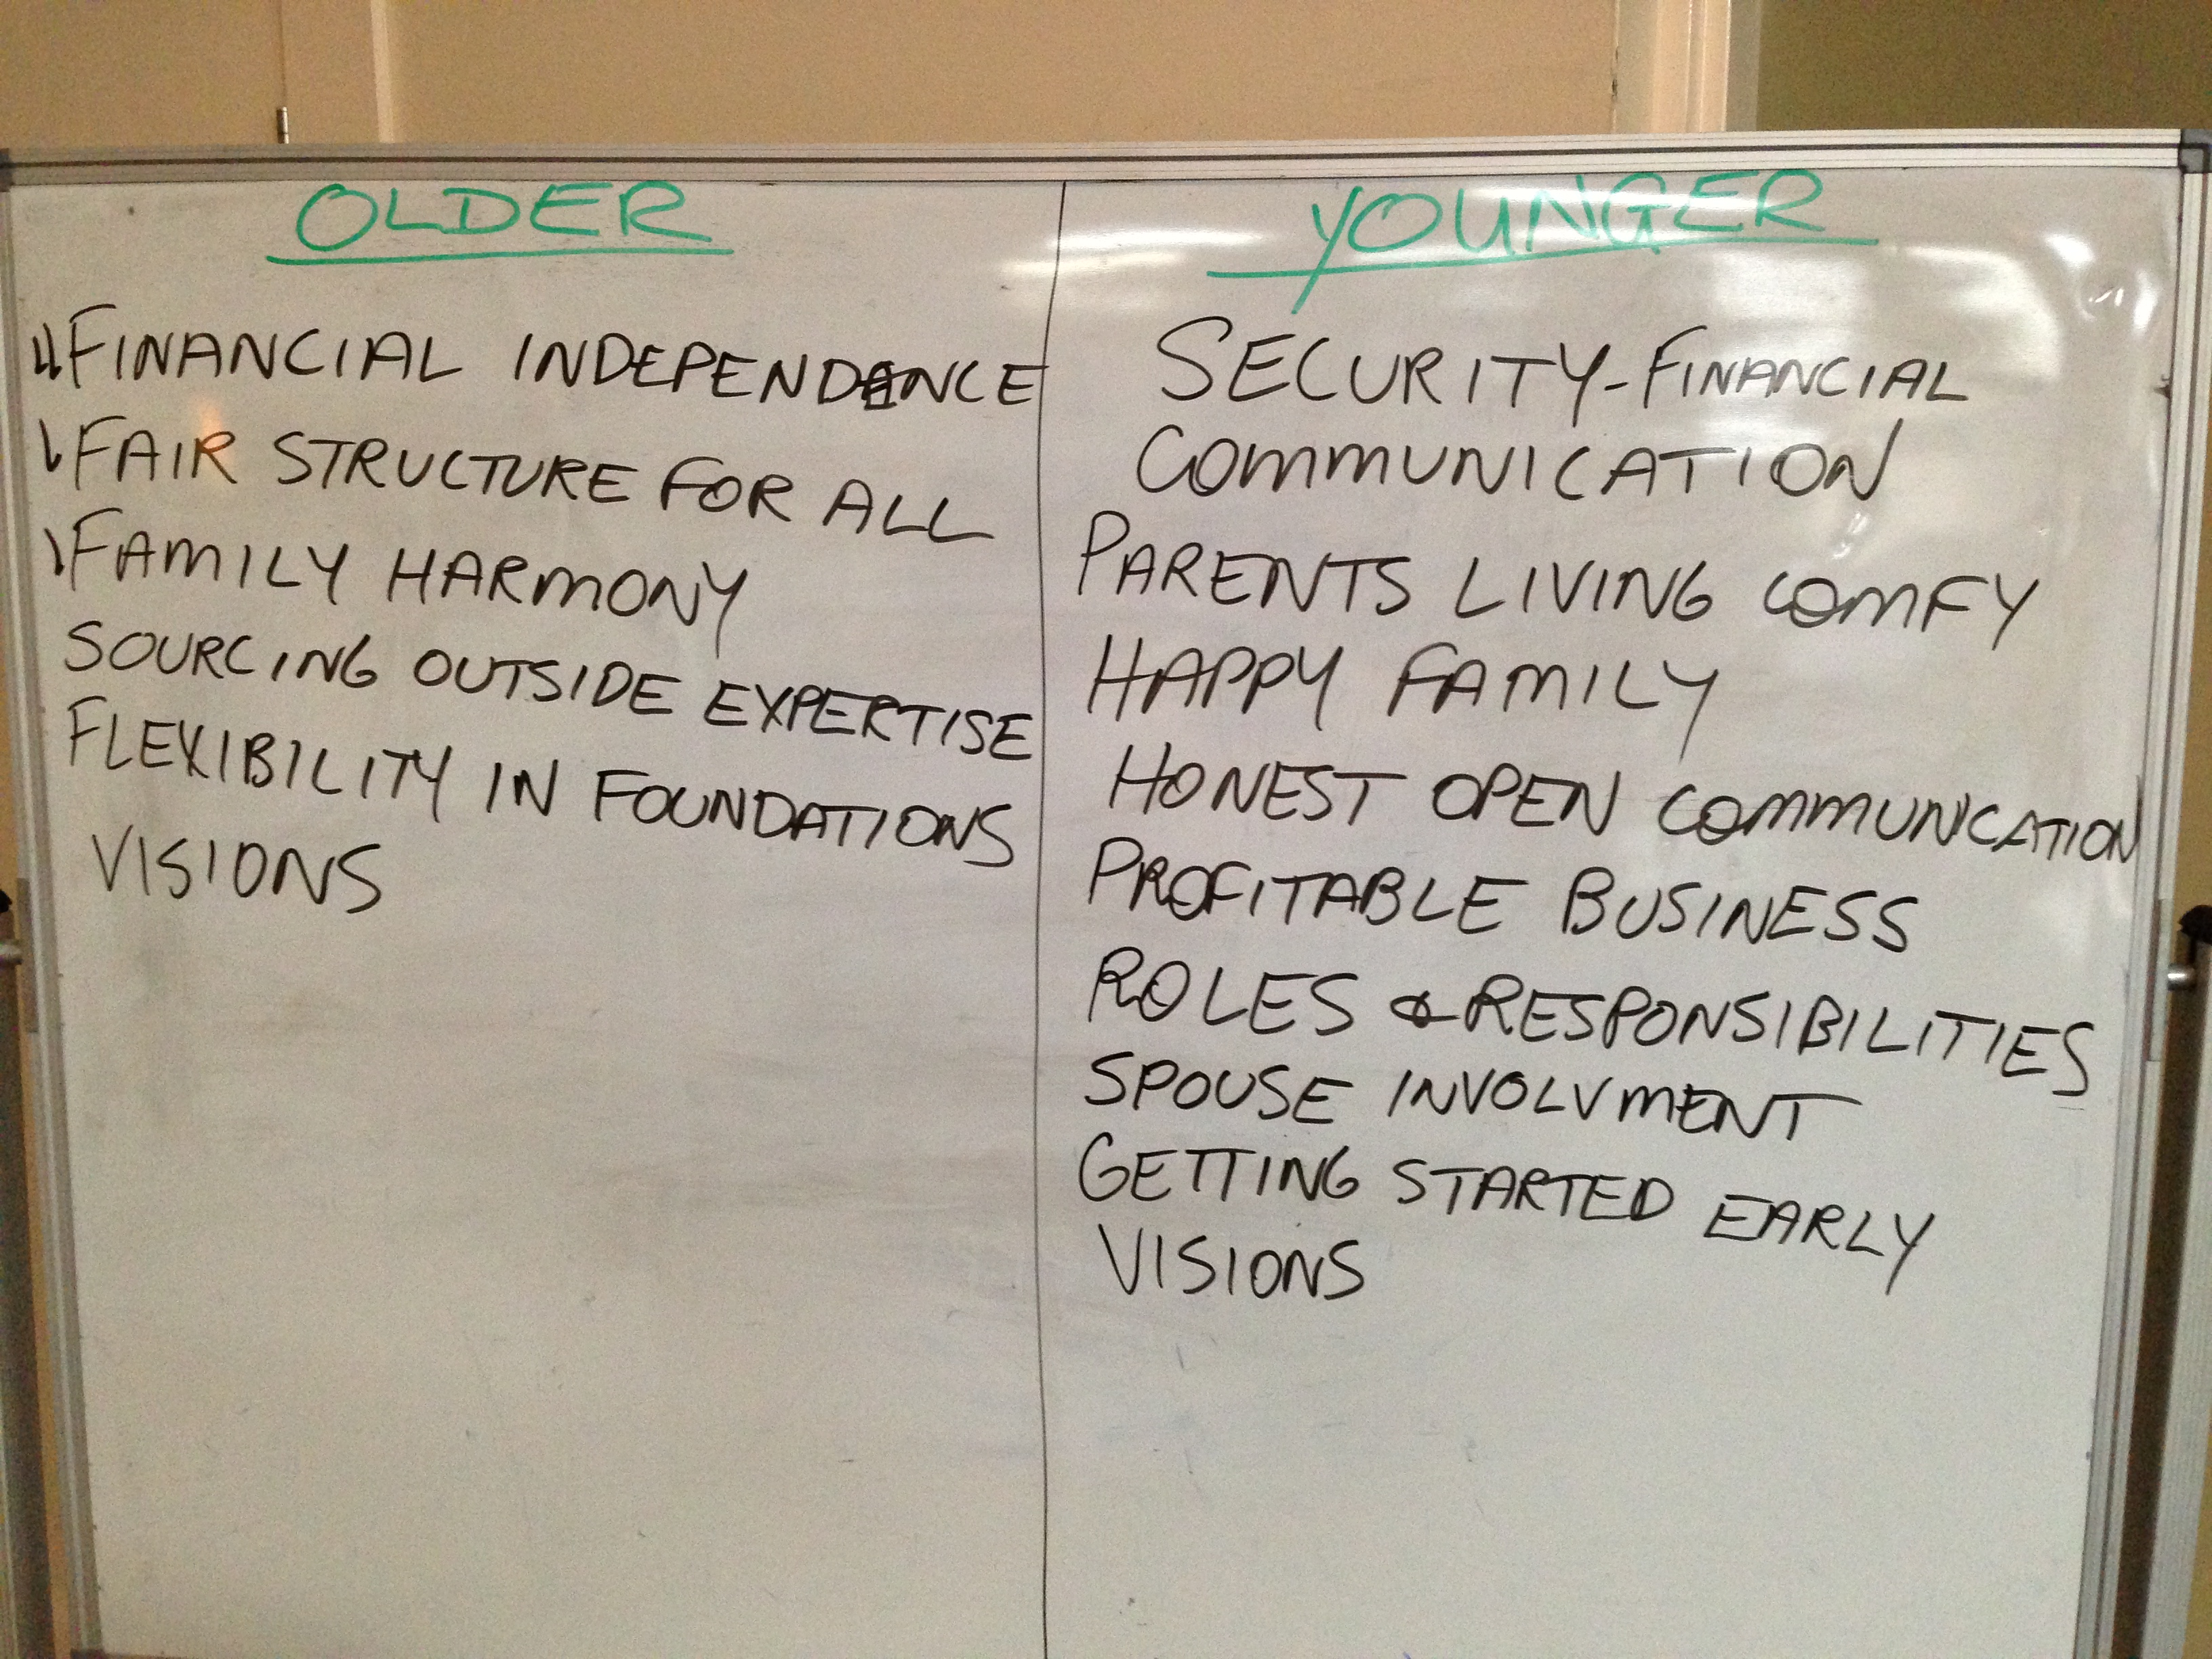 OLDER
FINANCIAL INDEPENDENCE
FAIR STRUCTURE FOR ALL
FAMILY HARMONY
SOURCING OUTSIDE EXPERTISE
FLEXIBILITY IN FOUNDATIONS
VISIONS
YOUNGER
SECURITY-FINANCIAL
COMMUNICATION
PARENTS LIVING COMFY
HAPPY FAMILY
HONEST OPEN COMMUNICATION
PROFITABLE BUSINESS
ROLES & RESPONSIBILITIES
SPOUSE INVOLVMENT
GETTING STARTED EARLY
VISIONS